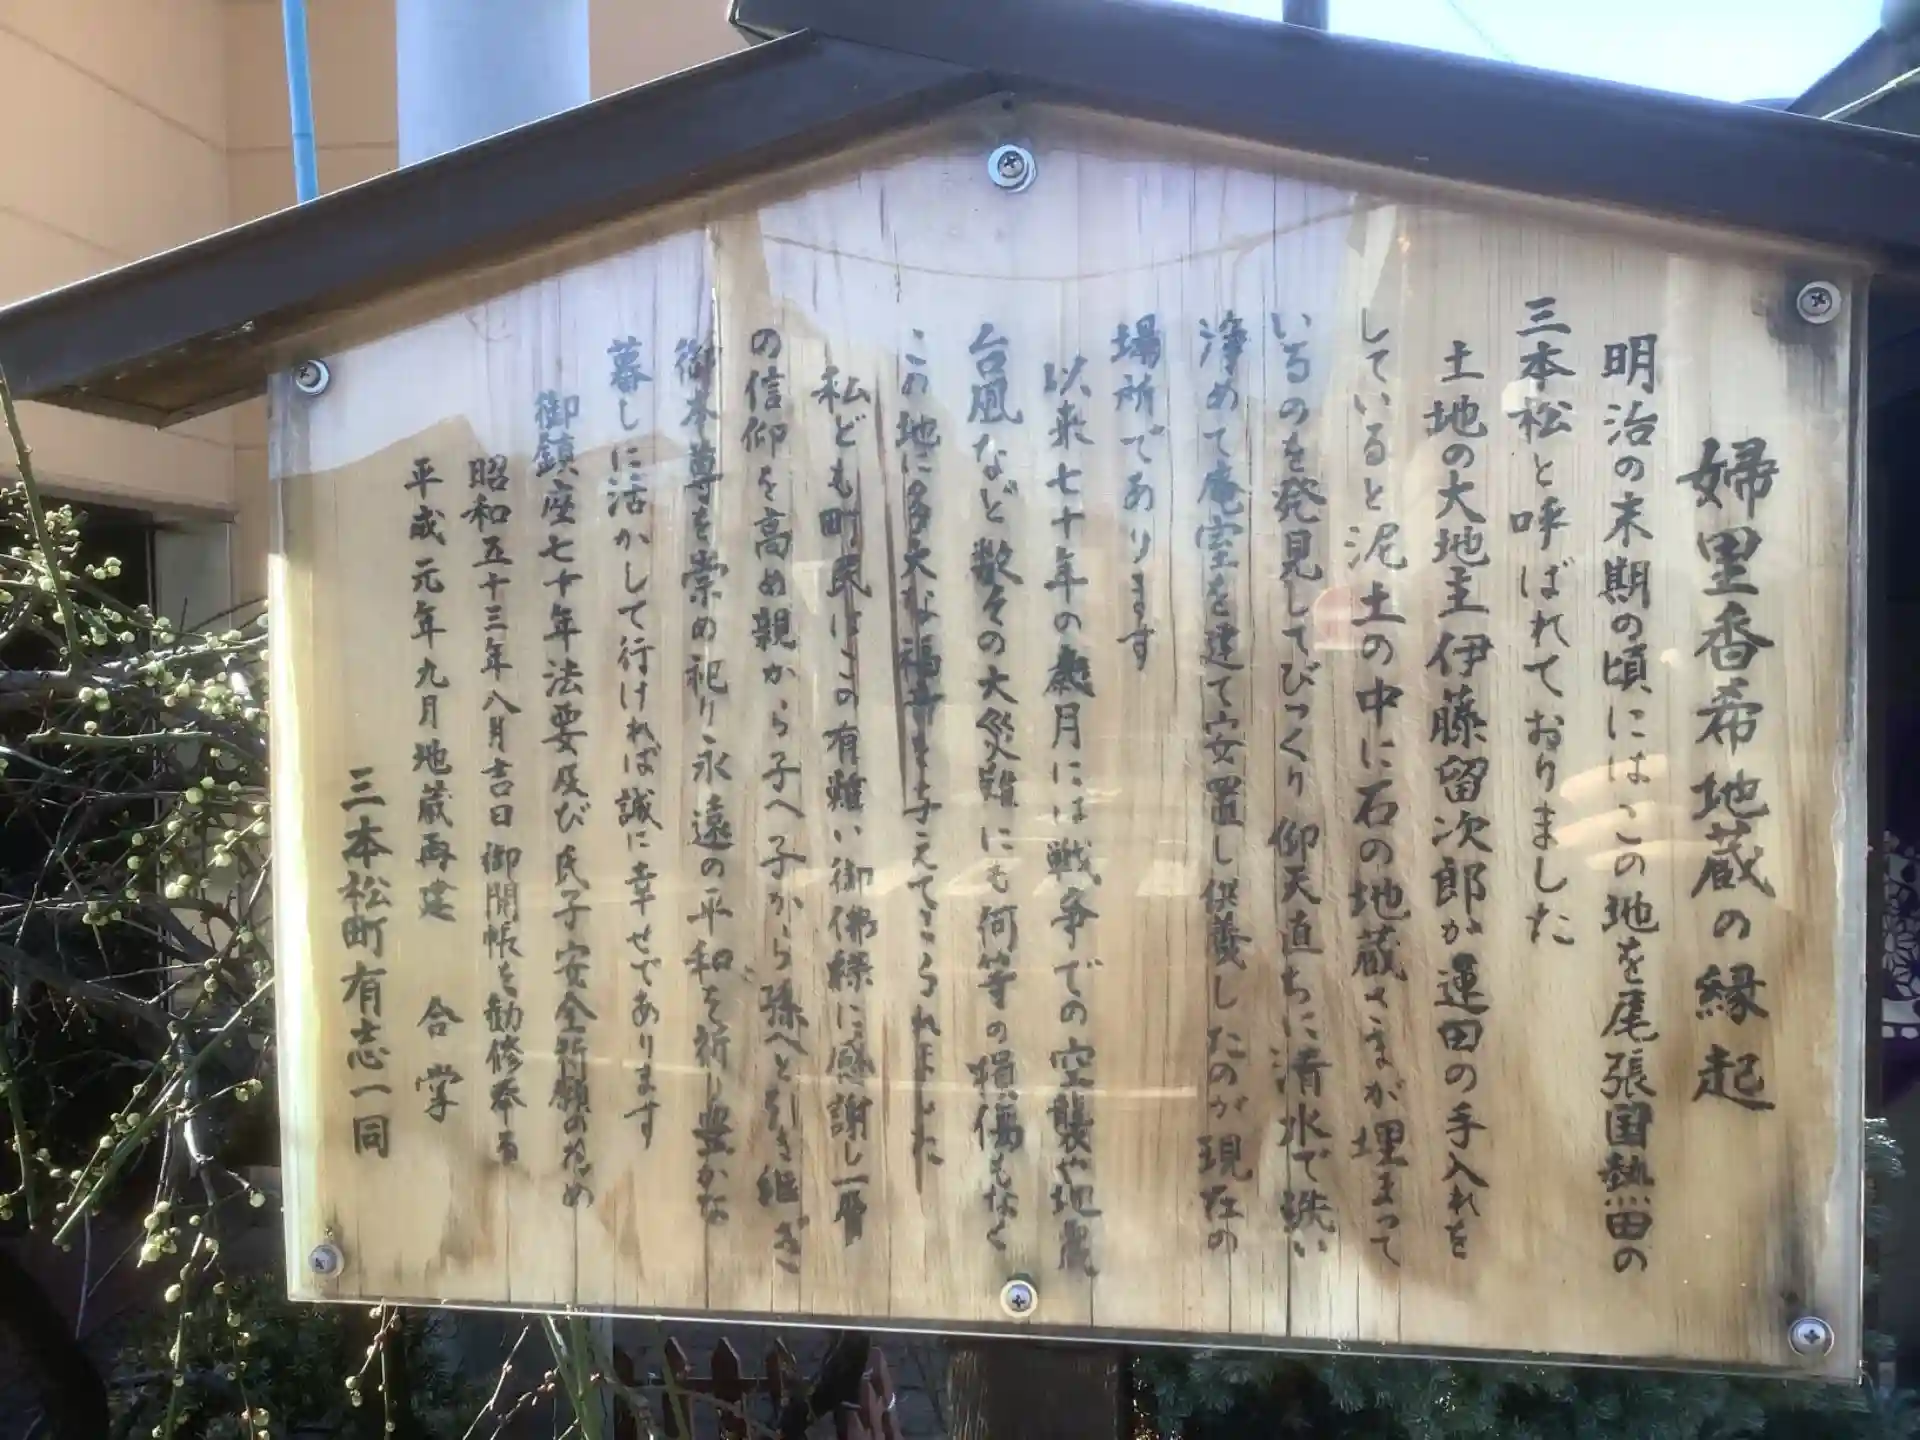 婦里香希地蔵の縁起
明治の末期の頃にはこの地を尾張国熱田の
三本松と呼ばれておりました
土地の大地主伊藤留次郎が蓮田の手入れを
していると泥土の中に石の地蔵さまが埋まって
いるのを発見してびっくり仰天直ちに清水で洗い
浄めて庵室を建て安置し供養したのが現在の
場所であります
以来七十年の歳月には戦争での空襲や地震
台風など数々の大災難にも何等の損傷もなく
この地に多大な福音を与えてこられました
私ども町民はこの有難い御佛縁に感謝し一層
の信仰を高め親から子へ子から孫へと引き継ぎ
御本尊を崇め祀り永遠の平和を祈り豊かな
暮しに活かして行ければ誠に幸せであります
御鎮座七十年法要及び氏子安全祈願のため
昭和五十三年八月吉日御開帳を勧修奉る
平成元年九月地蔵再建 合掌
三本松町有志一同